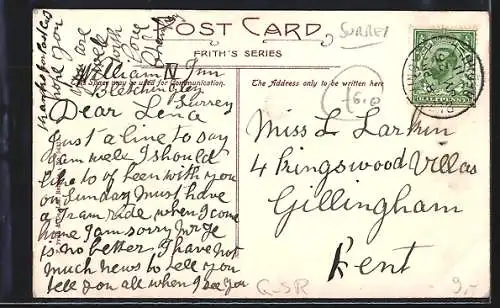 POST CARD
FRITH'S SERIES
This Space may be used for Communication.
The Address only to be written here
SURREY
HALFPENNY
William Inn
Bletchingley
Surrey
Dear Lena
Just a line to say
I am well I should
like to of been with you
on Sunday must have
a Tram ride when I come
home I am sorry
is no better I have not
much news to tell you
tell you all when I see you
thanks for Postcard
hope you
are
well
with
love
Miss L Larkin
4 Kingswood Villas
Gillingham
Kent
QSR
9,-